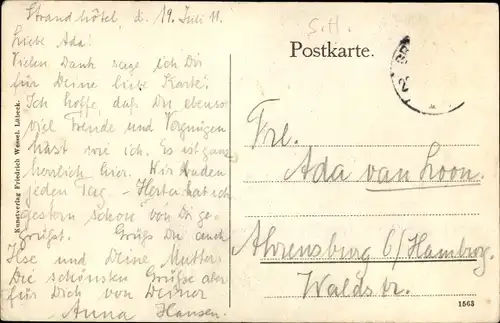 Strandhôtel, d. 19. Juli 11.
Liebe Ada!
Vielen Dank sage ich Dir
für Deine liebe Karte!
Ich hoffe, daß Du ebenso
viel Freude und Vergnügen
hast wie ich. Es ist ganz
herrlich hier. Wir baden
jeden Tag – Herta hat ich
gestern schon von Dir ge-
grüßt. Grüße Du auch
Ilse und Deine Mutter.
Die schönsten Grüße aber
für Dich von Deiner
Anna Hansen.
Kunstverlag Friedrich Wessel, Lübeck.
S.H.
Postkarte.
Frl.
Ada van Loon.
Ahrensburg b/Hamburg.
Waldstr.
1563